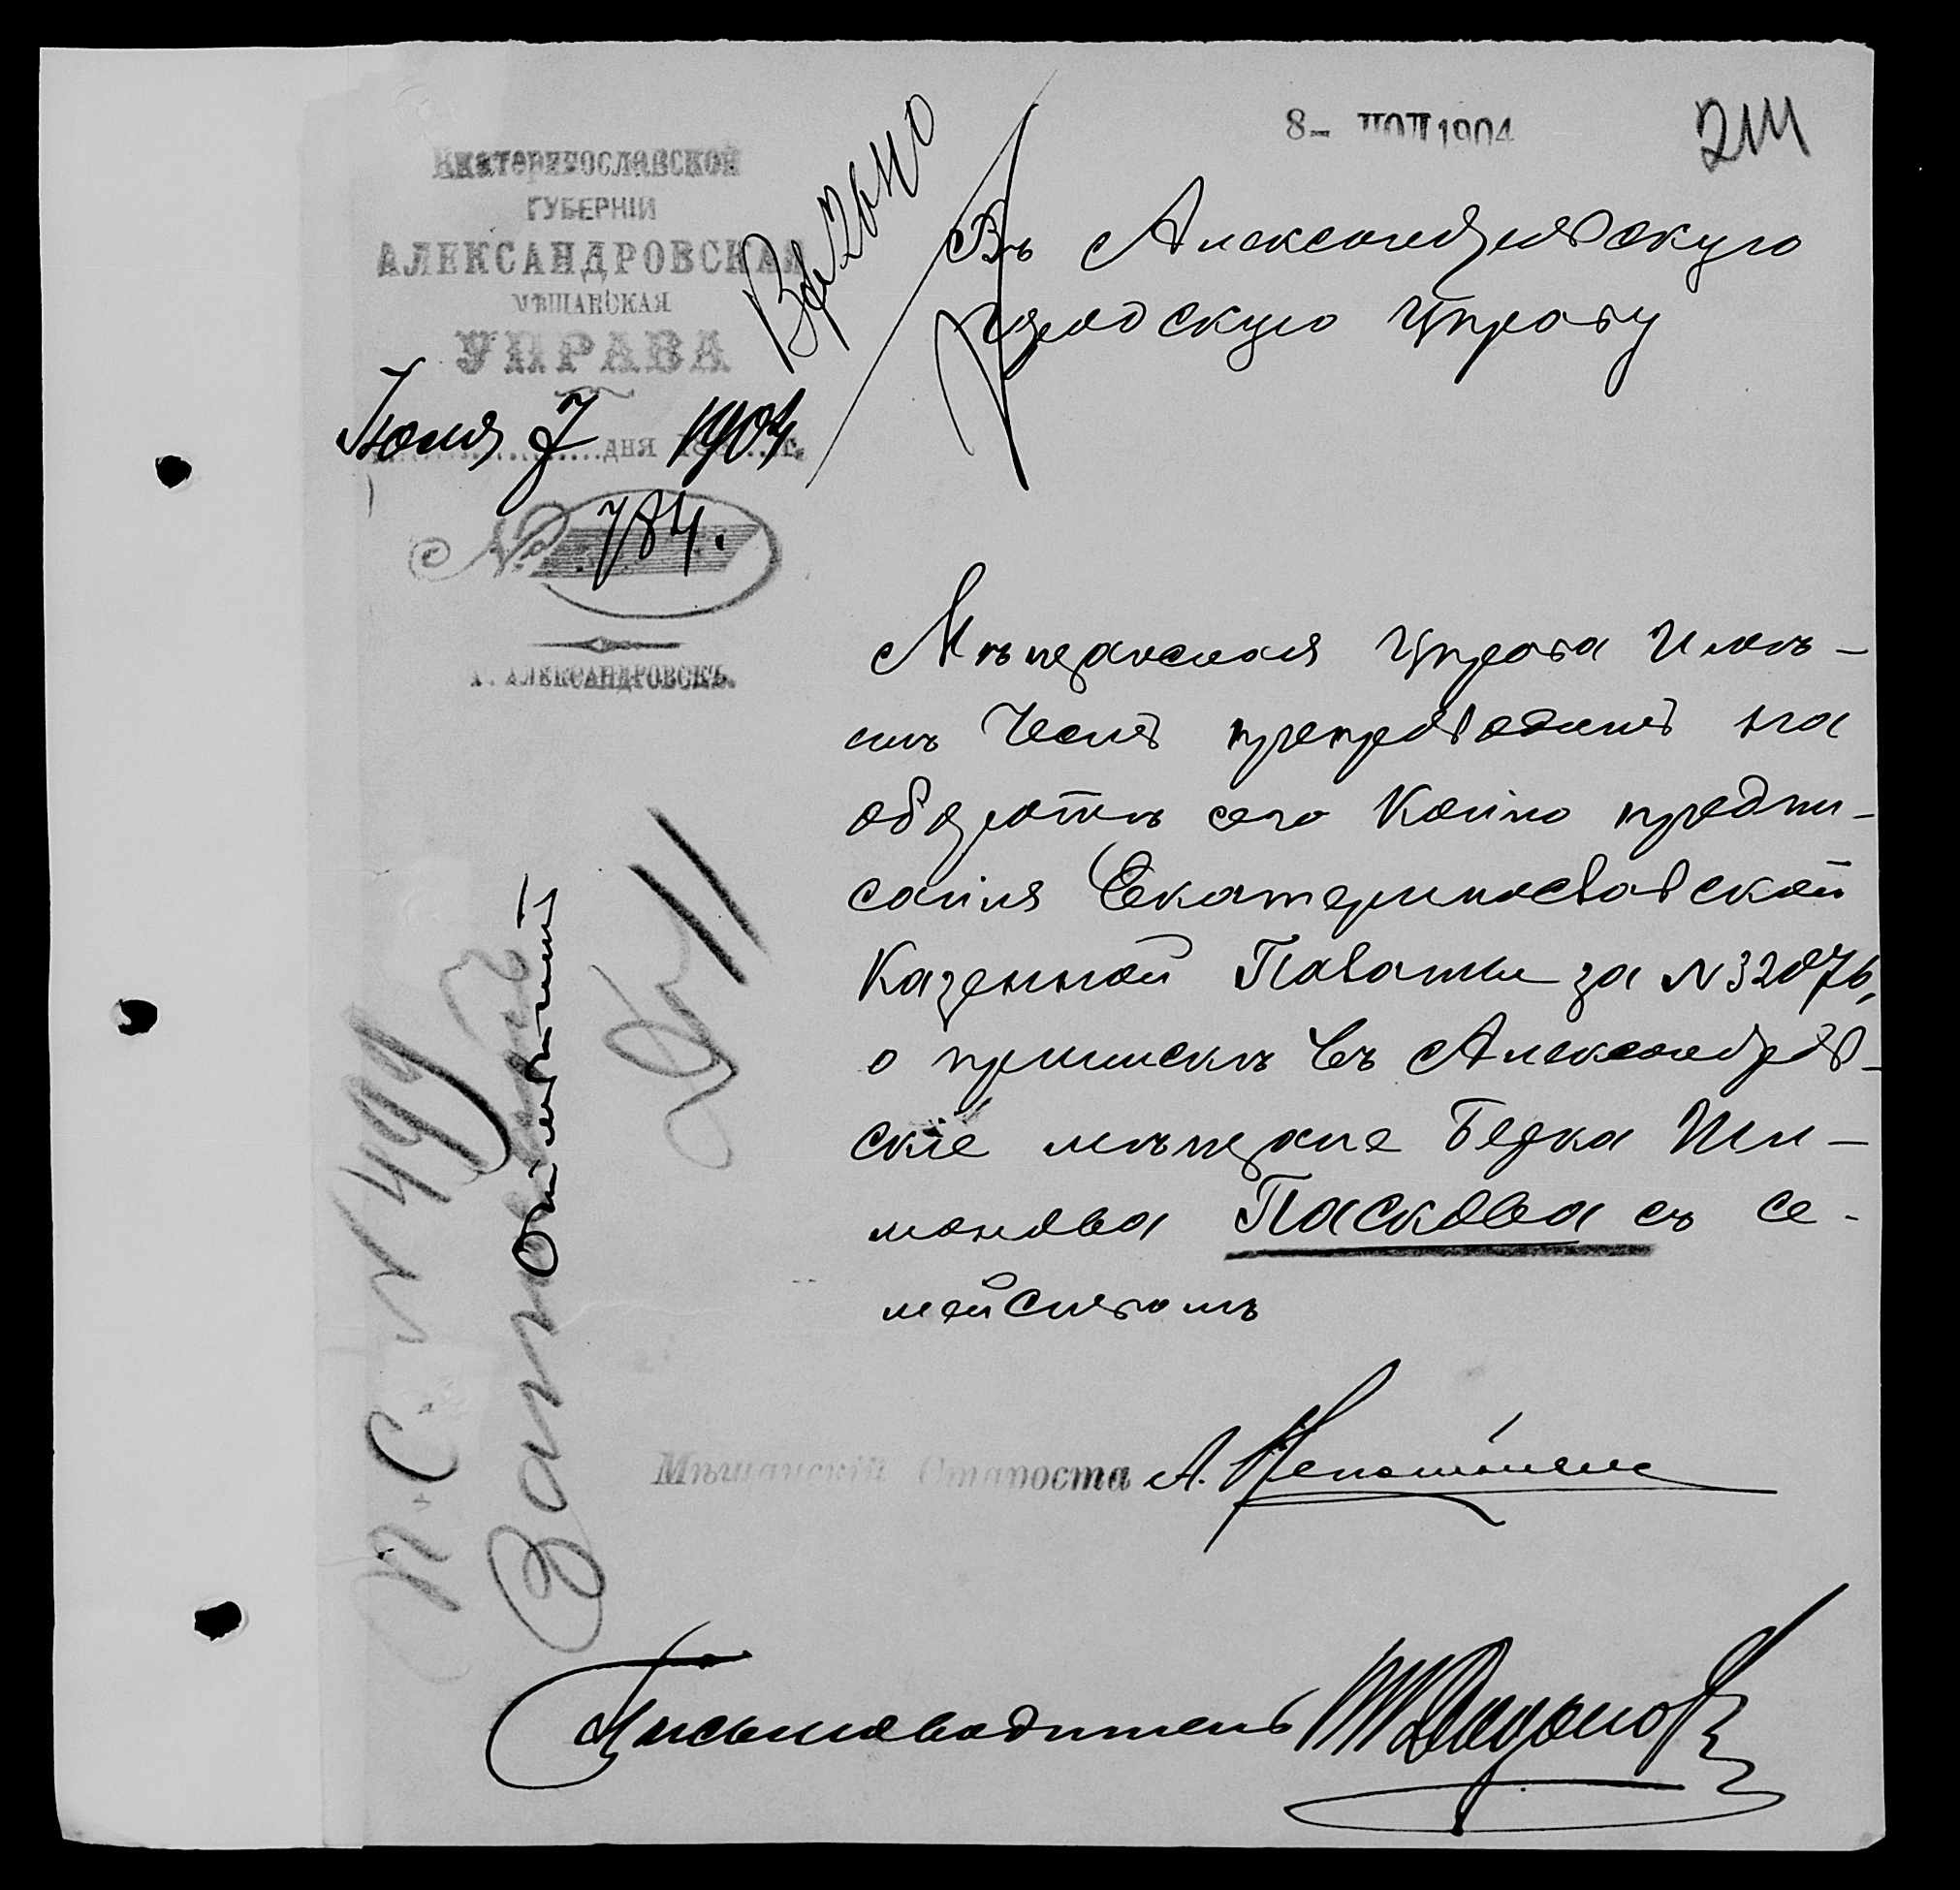 8- ІЮЛ 1904
211
Екатеринославской
ГУБЕРНІИ
АЛЕКСАНДРОВСКАЯ
МѢЩАНСКАЯ
УПРАВА
Іюля 7 дня 1904 г.
№ 784.
Г. АЛЕКСАНДРОВСКЪ.
Въ Александровскую
Городскую Управу
Мѣщанская Управа имѣ-
етъ честь препроводить на
оборотѣ сего копію предпи-
санія Екатеринославской
Казенной Палаты за N 32076,
о припискѣ въ Александров-
скіе мѣщане Берка Ши-
монова Паскова съ се-
мействомъ
Мѣщанскій Староста А.
Письмоводитель
П. С. N 499